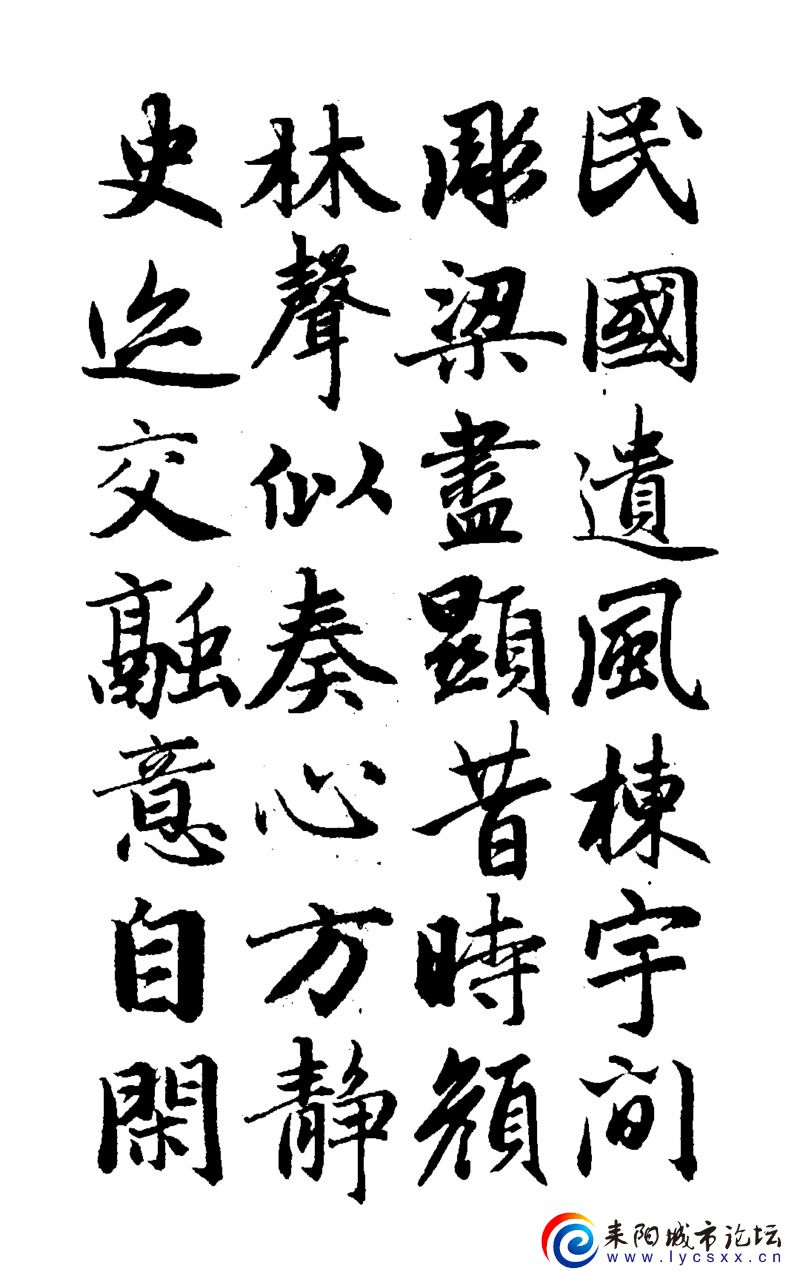 民國遺風棟宇間
彫梁盡顯昔時顔
林聲似奏心方静
史迹交融意自閑
耒阳城市论坛
www.lycsxx.cn